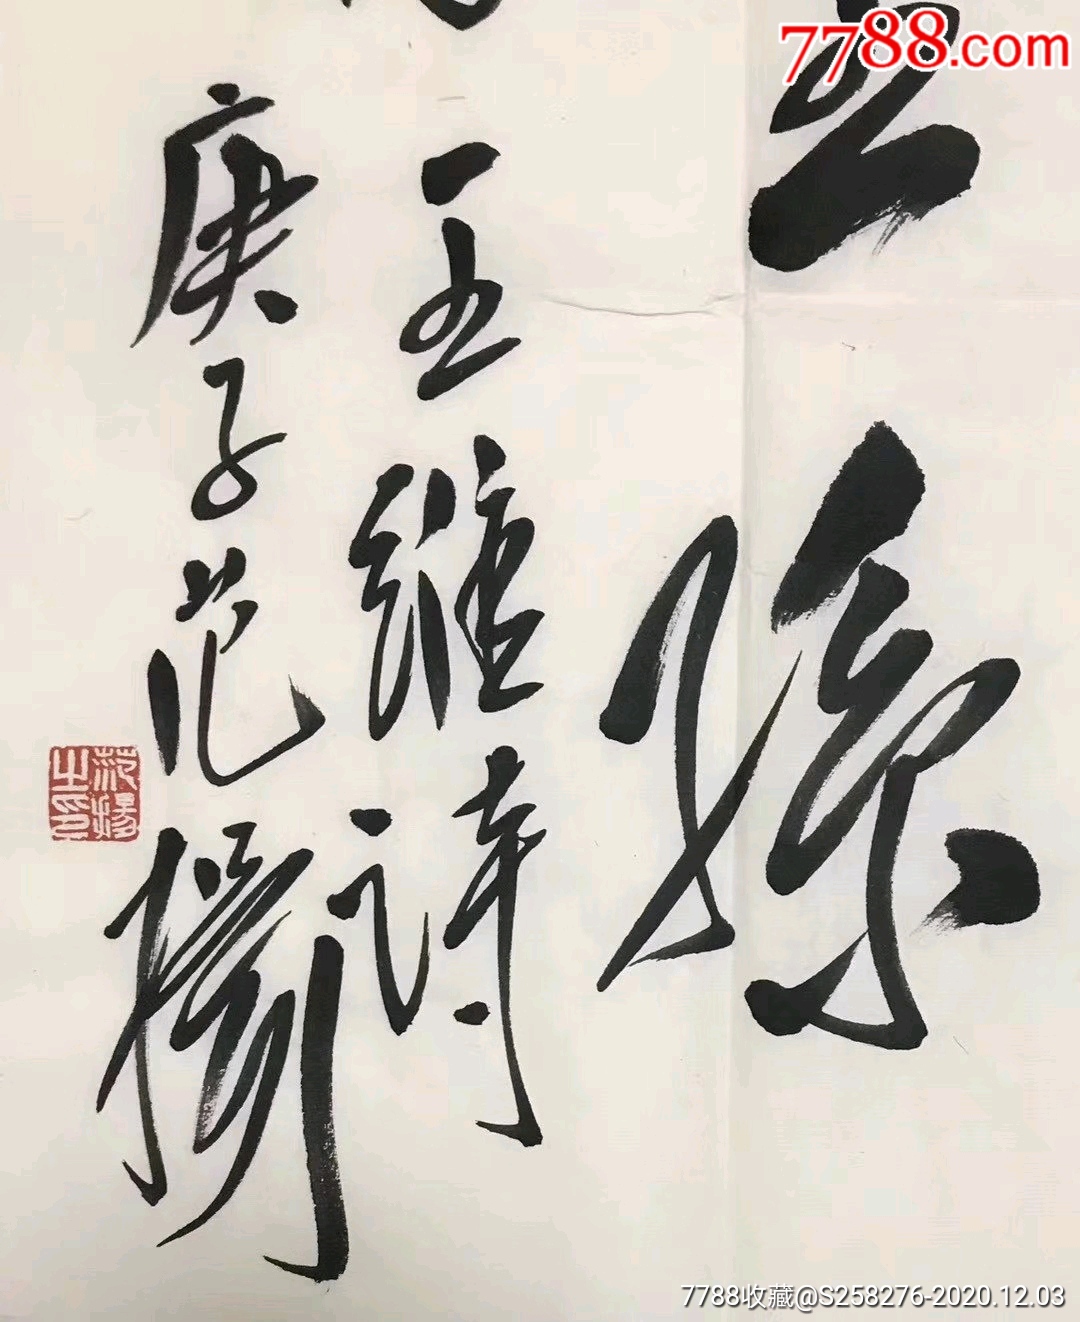 7788.com
王孫
王維詩
庚子范揚
范揚之印
7788收藏@S258276-2020.12.03